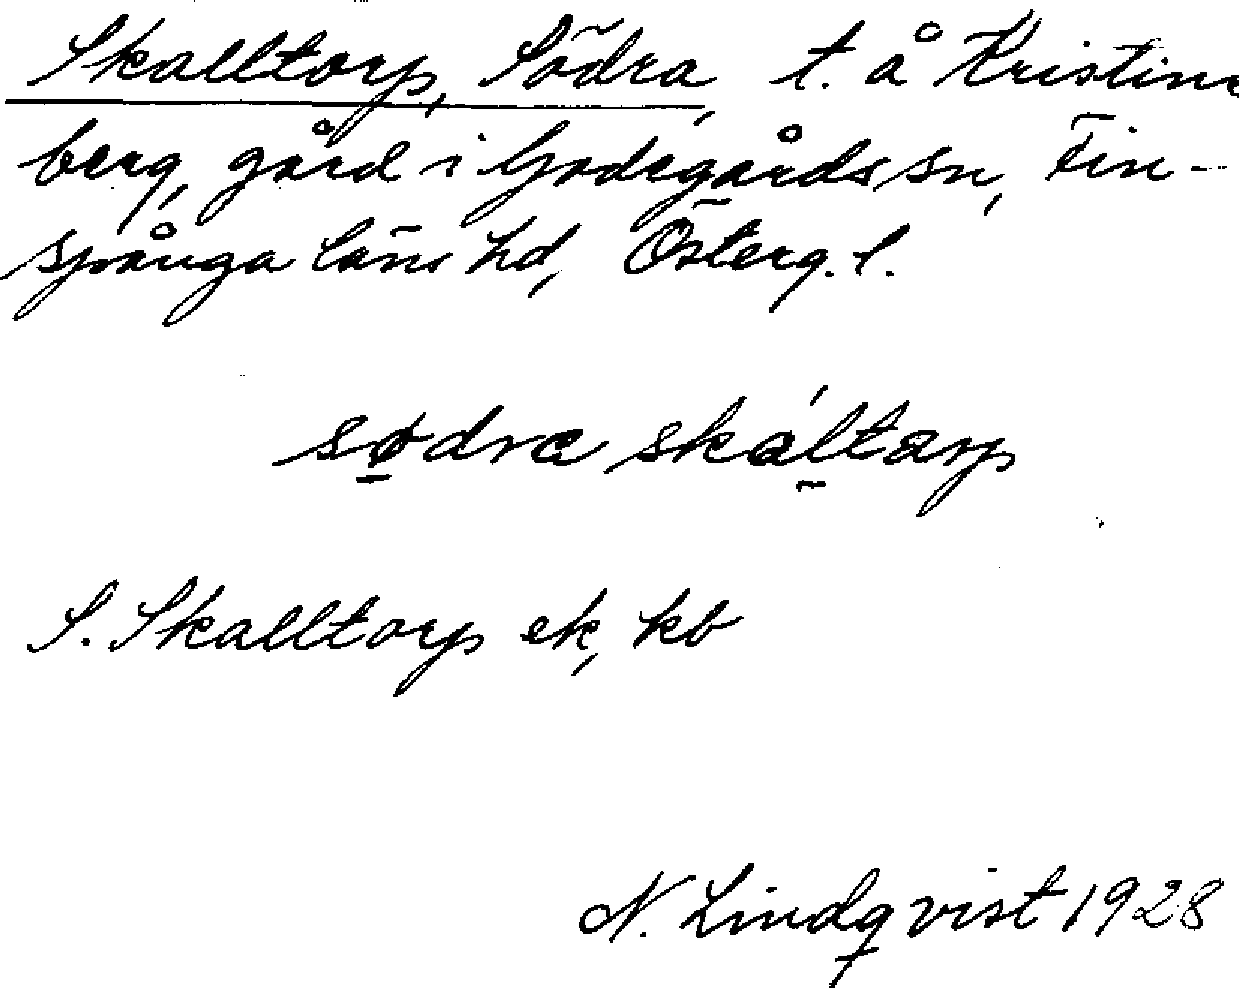 Skalltorp, Södra, t. å Kristine
berg, gård i Godegårds sn, Fin-
spånga läns hd, Österg. l.
sødra skáltarp
S. Skalltorp ek, kb
N. Lindqvist 1928